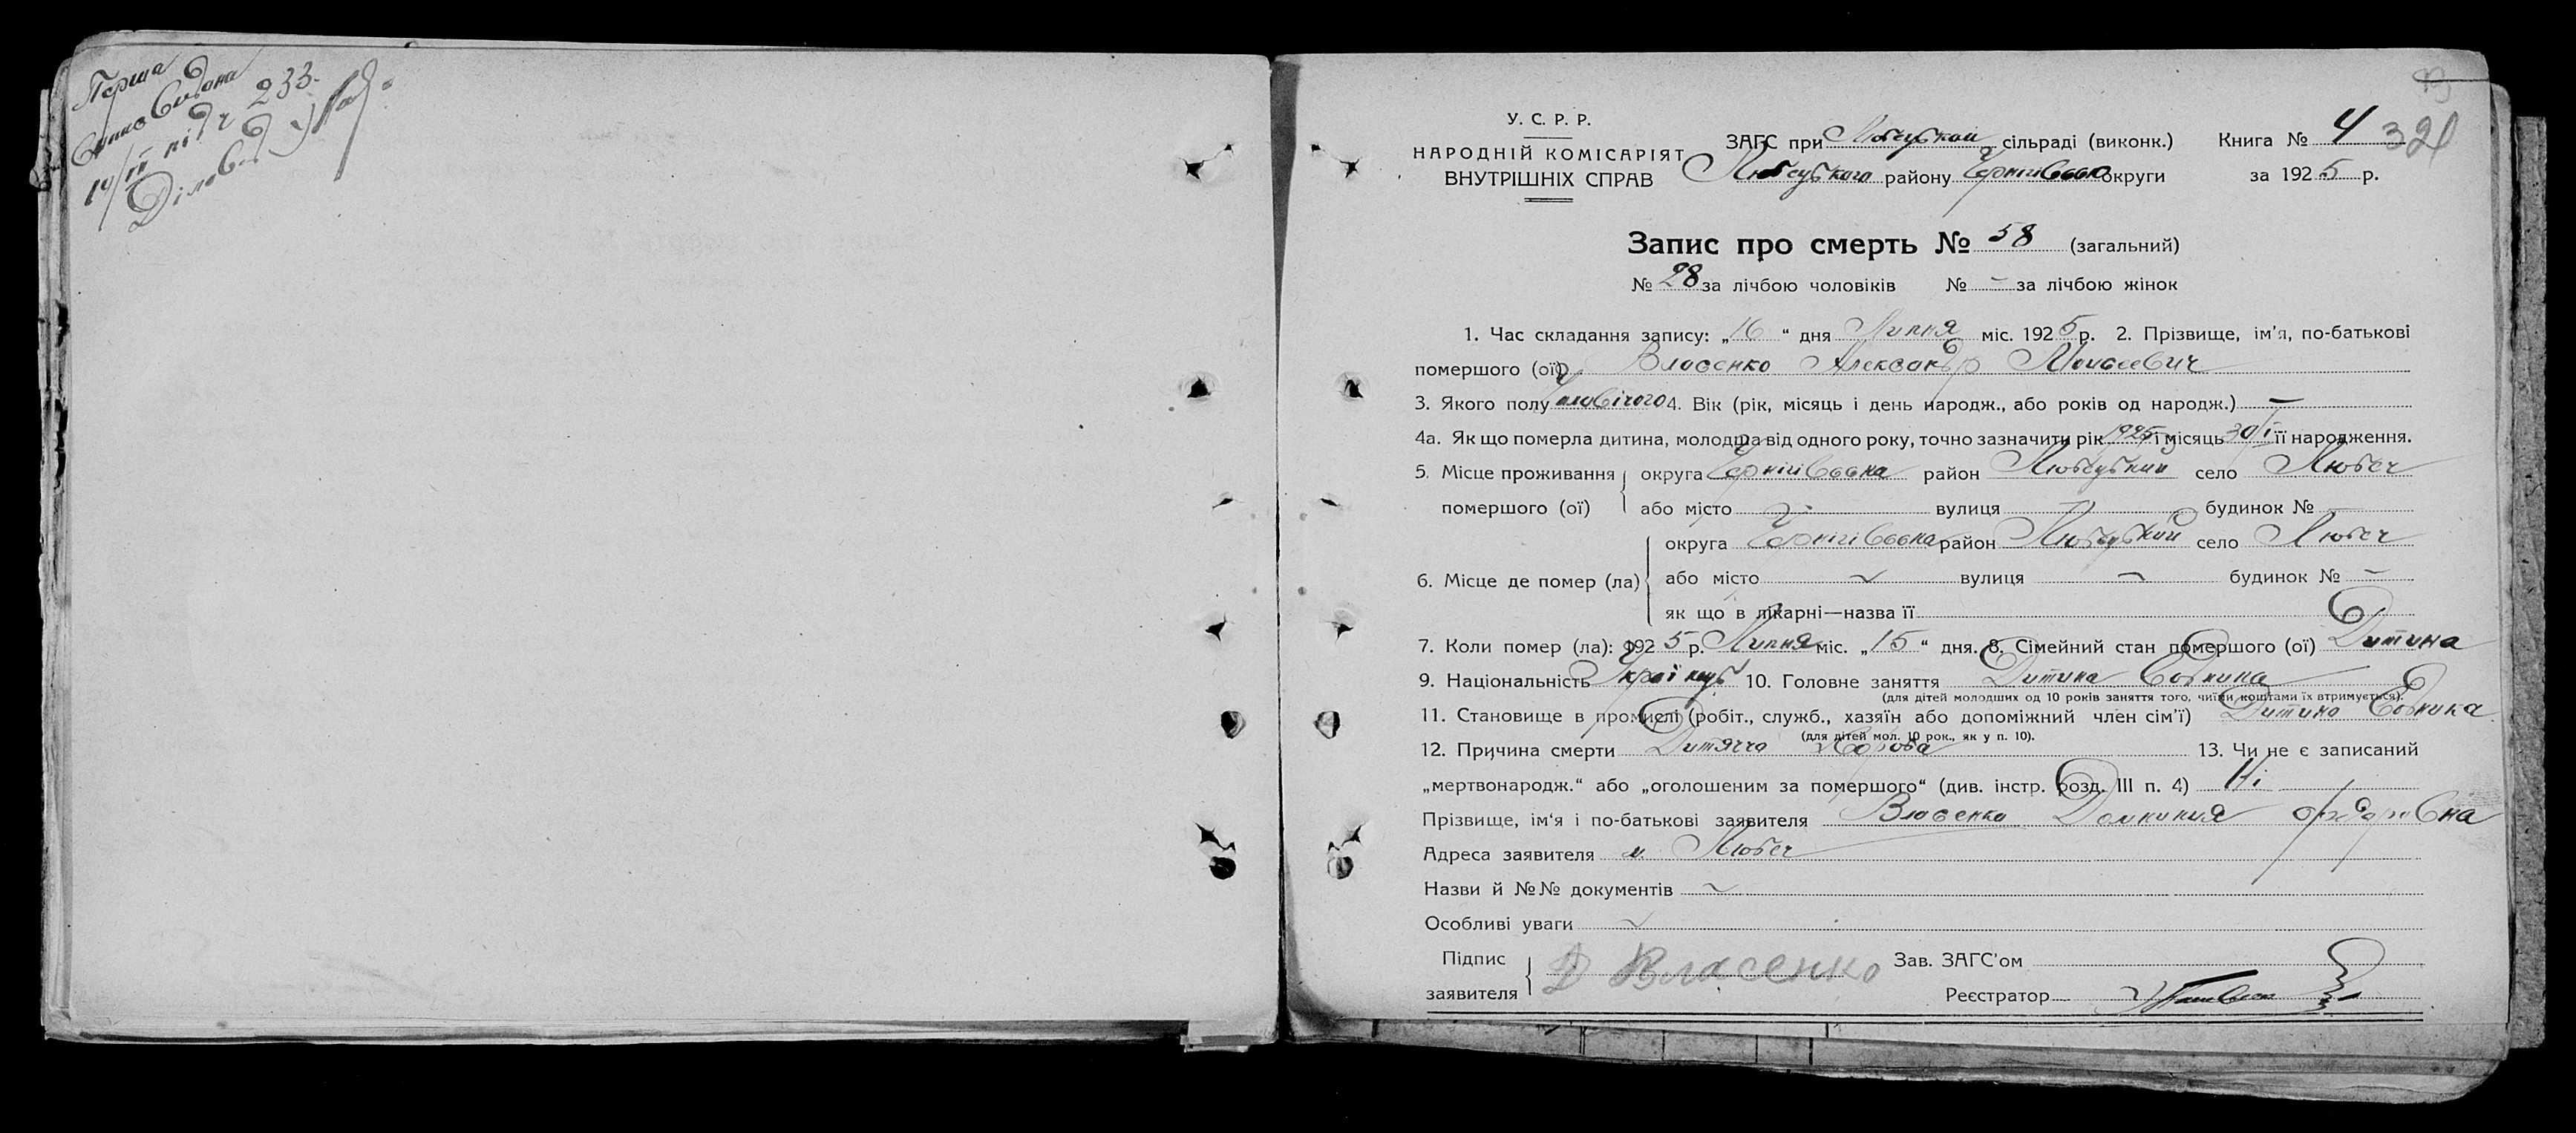 Перша
видана
14/IV під ч 233.
Діловод
У. С. Р. Р.
НАРОДНІЙ КОМІСАРІЯТ
ВНУТРІШНІХ СПРАВ
ЗАГС при Любецькой сільраді (виконк.) Книга № 4
Любецького району Чернігівсько округи за 1925 р.
Запис про смерть № 58 (загальний)
№ 28 за лічбою чоловіків № – за лічбою жінок
1. Час складання запису: „16“ дня Липня міс. 1925 р. 2. Прізвище, ім'я, по-батькові
помершого (ої) Власенко Александр Моисеевич
3. Якого полу Чоловічого 4. Вік (рік, місяць і день народж., або років од народж.) –
4а. Як що померла дитина, молодша від одного року, точно зазначити рік 1925 і місяць 30/I її народження.
5. Місце проживання округа Чернігівська район Любецький село Любеч
помершого (ої) або місто вулиця будинок №
округа Чернігівська район Любецький село Любеч
6. Місце де помер (ла) або місто – вулиця – будинок № –
як що в лікарні—назва її
7. Коли помер (ла): 1925 р. Липня міс. „15“ дня. 8. Сімейний стан помершого (ої) Дитина
9. Національність Українець 10. Головне заняття Дитина
(для дітей молодших од 10 років заняття того, чиїми коштами їх втримується).
11. Становище в промислі (робіт., служб., хазяїн або допоміжний член сім'ї) Дитина
(для дітей мол. 10 рок., як у п. 10).
12. Причина смерти Дитяча Хороба 13. Чи не є записаний
„мертвонародж.“ або „оголошеним за помершого“ (див. інстр. розд. III п. 4) Ні
Прізвище, ім'я і по-батькові заявителя Власенко Домникия Федоровна
Адреса заявителя м. Любеч
Назви й №№ документів –
Особливі уваги –
Підпис
заявителя Д Власенко
Зав. ЗАГС'ом
Реєстратор